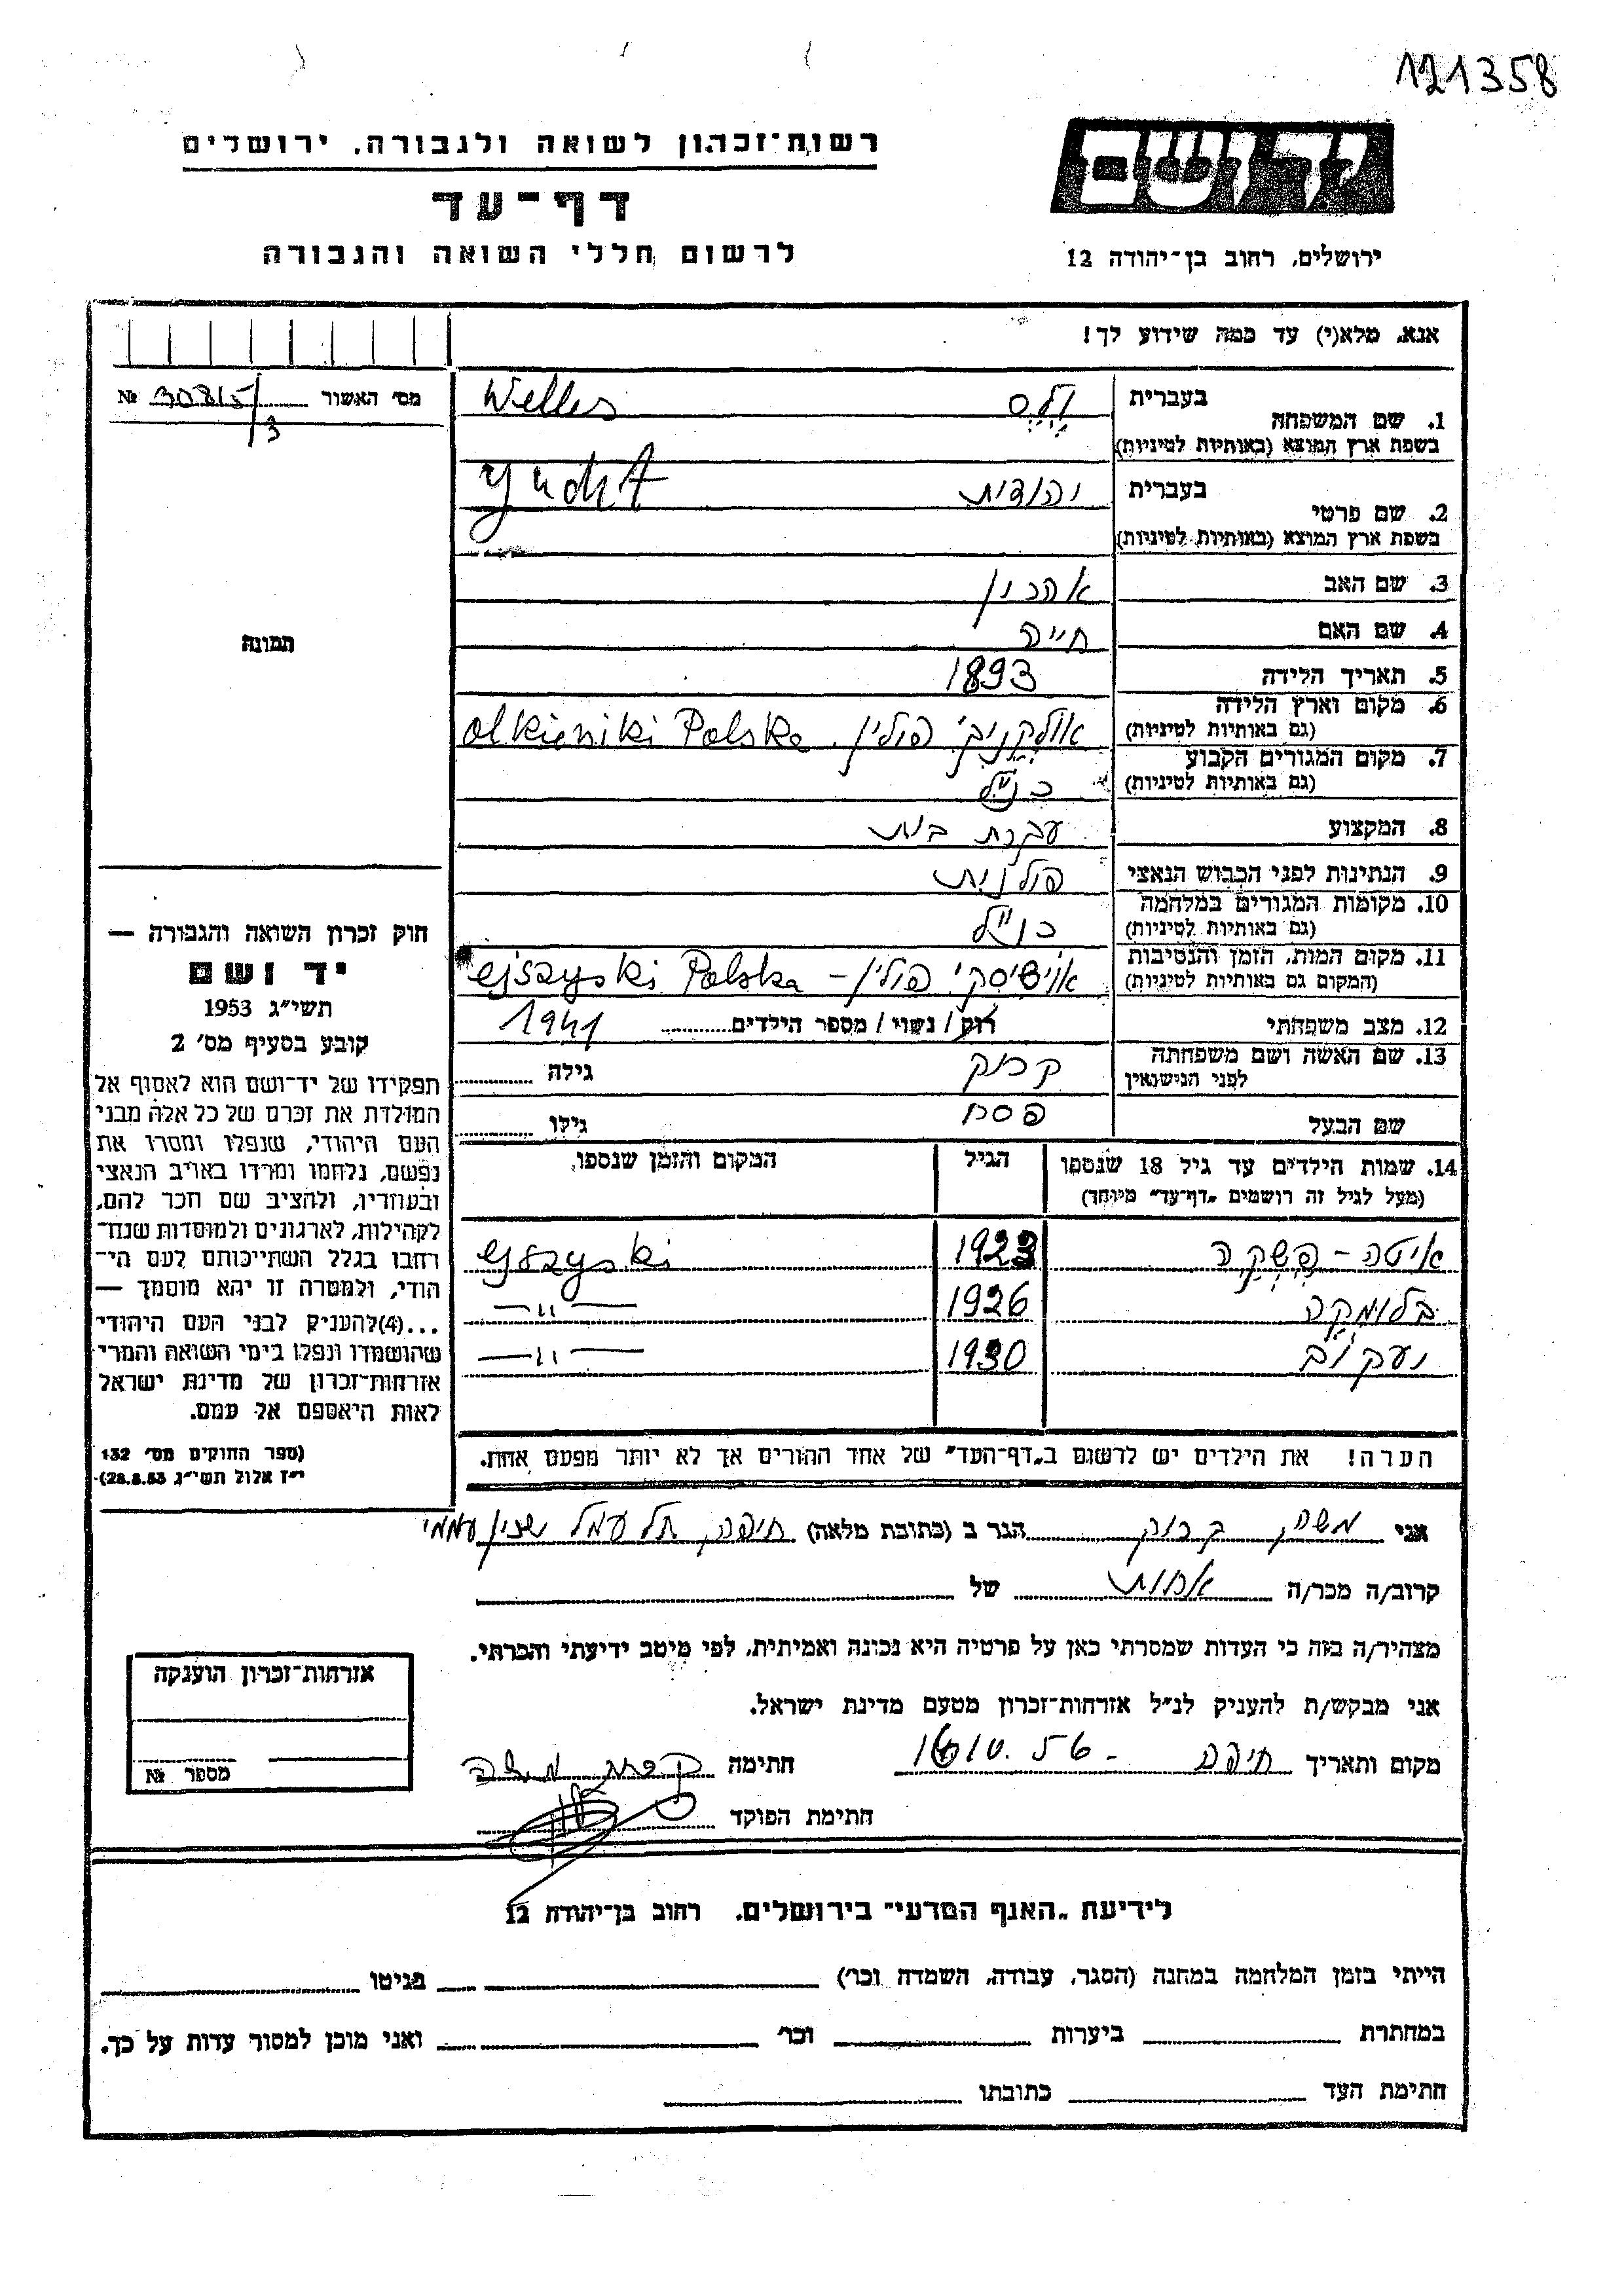 121358
יד ושם
ירושלים, רחוב בן־יהודה 12
רשות־זכרון לשואה ולגבורה, ירושלים
דף־עד
לרשום חללי השואה והגבורה
אנא, מלא(י) עד כמה שידוע לך!
מס׳ האשור № 30815/3
תמונה
1. שם המשפחה בעברית ולס Welles
בשפת ארץ המוצא (באותיות לטיניות)
2. שם פרטי בעברית יהודית Yudit
בשפת ארץ המוצא (באותיות לטיניות)
3. שם האב אהרון
4. שם האם חייה
5. תאריך הלידה 1893
6. מקום וארץ הלידה אולקניקי פולין. Olkieniki Polska
(גם באותיות לטיניות)
7. מקום המגורים הקבוע כנ״ל
(גם באותיות לטיניות)
8. המקצוע עקרת בית
9. הנתינות לפני הכבוש הנאצי פולנית
10. מקומות המגורים במלחמה כנ״ל
(גם באותיות לטיניות)
11. מקום המות, הזמן והנסיבות אישיסקי פולין – ejszyski Polska
(המקום גם באותיות לטיניות)
12. מצב משפחתי רוק / נשוי / מספר הילדים 1941
13. שם האשה ושם משפחתה גילה
לפני הנישואין
שם הבעל פסח גילו
14. שמות הילדים עד גיל 18 שנספו הגיל המקום והזמן שנספו,
(מעל לגיל זה רושמים „דף־עד״ מיוחד)
איטה – פשקה 1923 ejszyski
בלומקה 1926 — 〃 —
יעקב 1930 — 〃 —
הערה! את הילדים יש לרשום ב„דף־העד״ של אחד ההורים אך לא יותר מפעם אחת.
חוק זכרון השואה והגבורה —
יד ושם
תשי״ג 1953
קובע בסעיף מס׳ 2
תפקידו של יד־ושם הוא לאסוף אל
המולדת את זכרם של כל אלה מבני
העם היהודי, שנפלו ומסרו את
נפשם, נלחמו ומרדו באויב הנאצי
ובעוזריו, ולהציב שם וזכר להם,
לקהילות, לארגונים ולמוסדות שנח־
רחבו בגלל השתייכותם לעם הי־
הודי, ולמטרה זו יהא מוסמך —
...(4)להעניק לבני העם היהודי
שהושמדו ונפלו בימי השואה והמרי
אזרחות־זכרון של מדינת ישראל
לאות היאספם אל עמם.
(ספר החוקים מס׳ 132
י״ז אלול תשי״ג 28.8.53)
אני משה הגר ב (כתובת מלאה) חיפה, תל עמל שכון עממי
קרוב/ה מכר/ה אחות של
מצהיר/ה בזה כי העדות שמסרתי כאן על פרטיה היא נכונה ואמיתית, לפי מיטב ידיעתי והכרתי.
אני מבקש/ת להעניק לנ״ל אזרחות־זכרון מטעם מדינת ישראל.
מקום ותאריך חיפה - 16.10.56 חתימה
חתימת הפוקד
אזרחות־זכרון הוענקה
מספר №
לידיעת „האגף המדעי״ בירושלים, רחוב בן־יהודה 12
הייתי בזמן המלחמה במחנה (הסגר, עבודה, השמדה וכו׳) בגיטו
במחתרת ביערות וכו׳ ואני מוכן למסור עדות על כך.
חתימת העד כתובתו